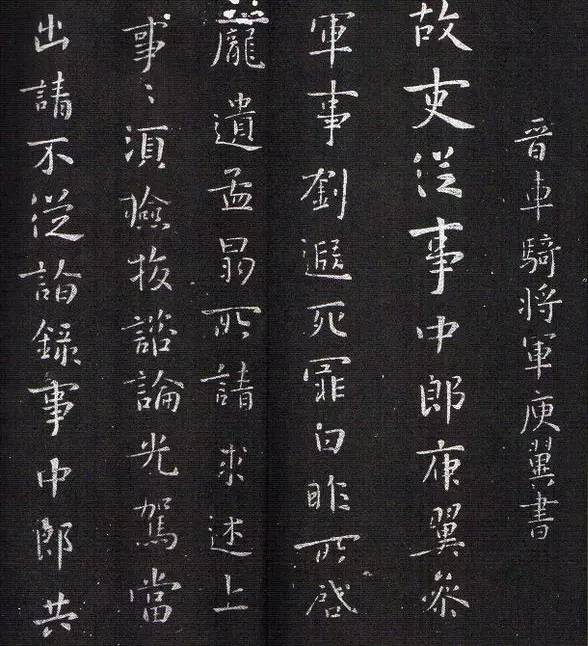 晉車騎將軍庾翼書
故吏從事中郎庾翼參
軍事劉遐死罪白昨所啓
龐遺孟昺所請求述上
事〻須檢校諮論光駕當
出請不從錄事中郎共